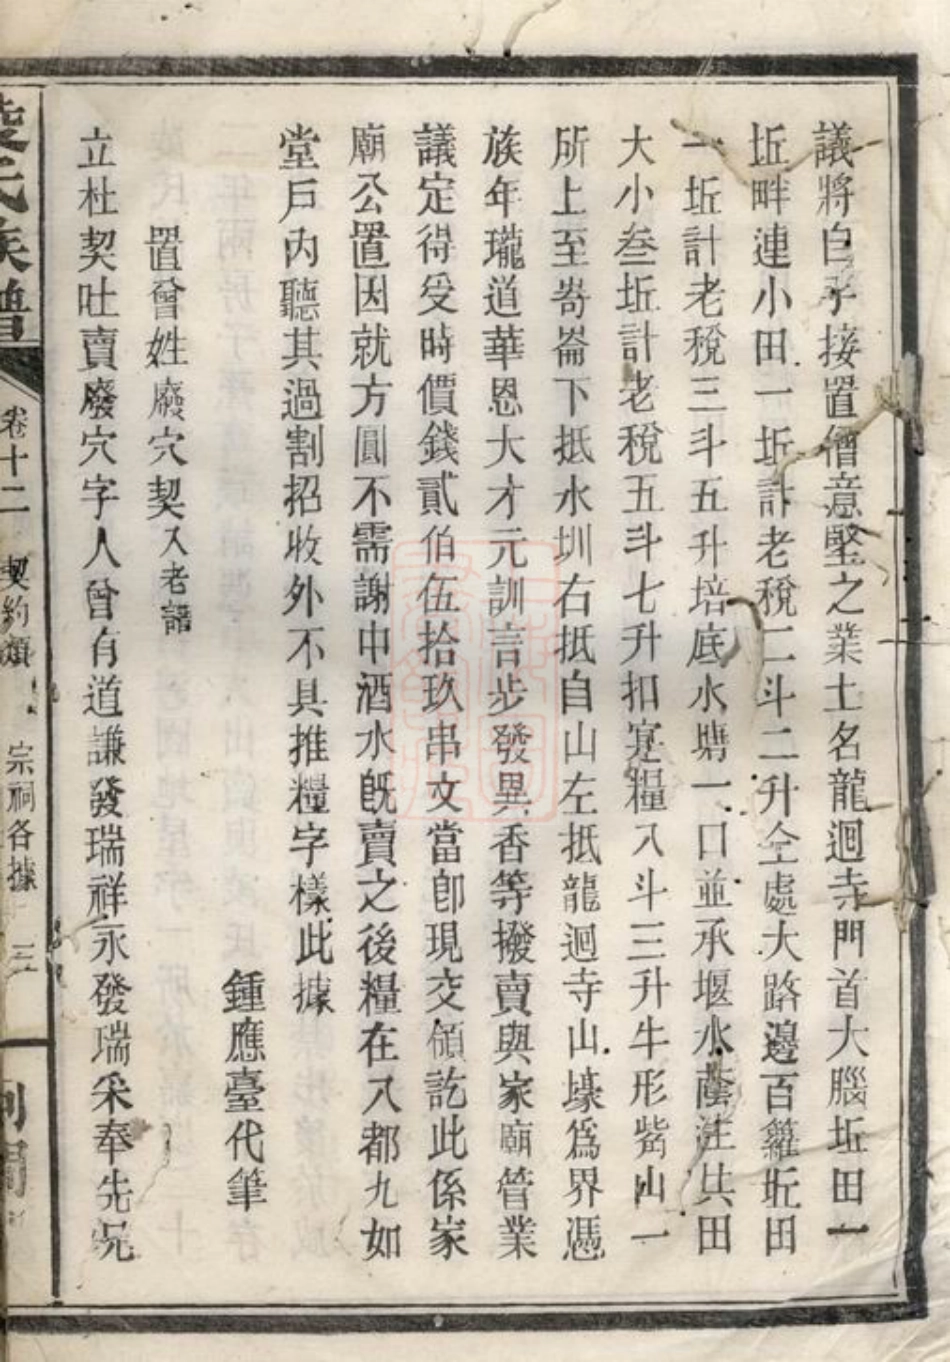 議將自手接置僧意堅之業土名龍迴寺門首大腦坵田一
坵畔連小田一坵計老稅二斗二升仝處大路邊百籮坵田
一坵計老稅三斗五升培底水塘一口並承堰水蔭注共田
大小叁坵計老稅五斗七升扣寔糧八斗三升牛形嘴山一
所上至峝崙下抵水圳右抵自山左抵龍迴寺山壕為界憑
族年瓏道華恩大才元訓言步發異香等撥賣與家廟管業
議定得受時價錢貳伯伍拾玖串文當卽現交領訖此係家
廟公置因就方圓不需謝中酒水旣賣之後糧在八都九如
堂戶內聽其過割招收外不具推糧字樣此據
鍾應臺代筆
置曾姓廢穴契入老譜
立杜契吐賣廢穴字人曾有道謙發瑞祥永發瑞采奉先兄
氏族譜
卷十二 契約類 宗祠各據 三